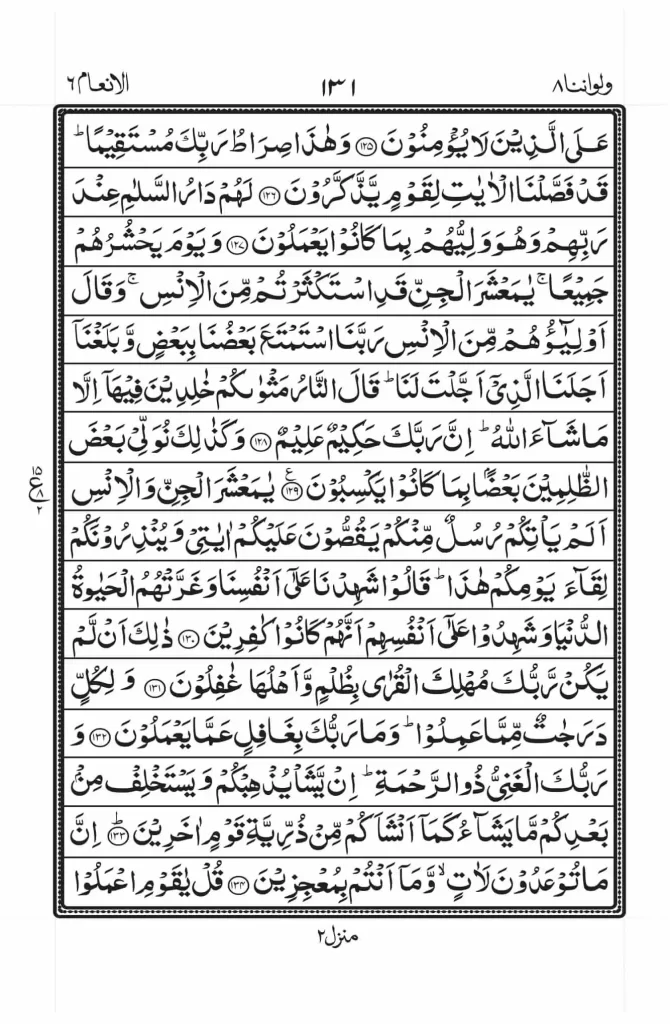 ولواننا ٨ ١٣١ الانعام ٦
عَلَى الَّذِيْنَ لَا يُؤْمِنُوْنَ ﴿۱۲۵﴾ وَهٰذَا صِرَاطُ رَبِّكَ مُسْتَقِيْمًا ؕ
قَدْ فَصَّلْنَا الْاٰيٰتِ لِقَوْمٍ يَّذَّكَّرُوْنَ ﴿۱۲۶﴾ لَهُمْ دَارُ السَّلٰمِ عِنْدَ
رَبِّهِمْ وَهُوَ وَلِيُّهُمْ بِمَا كَانُوْا يَعْمَلُوْنَ ﴿۱۲۷﴾ وَيَوْمَ يَحْشُرُهُمْ
جَمِيْعًا ۚ يٰمَعْشَرَ الْجِنِّ قَدِ اسْتَكْثَرْتُمْ مِّنَ الْاِنْسِ ۚ وَقَالَ
اَوْلِيٰٓؤُهُمْ مِّنَ الْاِنْسِ رَبَّنَا اسْتَمْتَعَ بَعْضُنَا بِبَعْضٍ وَّبَلَغْنَاۤ
اَجَلَنَا الَّذِيْۤ اَجَّلْتَ لَنَا ؕ قَالَ النَّارُ مَثْوٰىكُمْ خٰلِدِيْنَ فِيْهَاۤ اِلَّا
مَا شَآءَ اللّٰهُ ؕ اِنَّ رَبَّكَ حَكِيْمٌ عَلِيْمٌ ﴿۱۲۸﴾ وَكَذٰلِكَ نُوَلِّيْ بَعْضَ
الظّٰلِمِيْنَ بَعْضًۢا بِمَا كَانُوْا يَكْسِبُوْنَ ﴿۱۲۹﴾ ع يٰمَعْشَرَ الْجِنِّ وَالْاِنْسِ
۱۵ ع ۸ ۲
اَلَمْ يَاْتِكُمْ رُسُلٌ مِّنْكُمْ يَقُصُّوْنَ عَلَيْكُمْ اٰيٰتِيْ وَيُنْذِرُوْنَكُمْ
لِقَآءَ يَوْمِكُمْ هٰذَا ؕ قَالُوْا شَهِدْنَا عَلٰۤى اَنْفُسِنَا وَغَرَّتْهُمُ الْحَيٰوةُ
الدُّنْيَا وَشَهِدُوْا عَلٰۤى اَنْفُسِهِمْ اَنَّهُمْ كَانُوْا كٰفِرِيْنَ ﴿۱۳۰﴾ ذٰلِكَ اَنْ لَّمْ
يَكُنْ رَّبُّكَ مُهْلِكَ الْقُرٰى بِظُلْمٍ وَّاَهْلُهَا غٰفِلُوْنَ ﴿۱۳۱﴾ وَلِكُلٍّ
دَرَجٰتٌ مِّمَّا عَمِلُوْا ؕ وَمَا رَبُّكَ بِغَافِلٍ عَمَّا يَعْمَلُوْنَ ﴿۱۳۲﴾ وَ
رَبُّكَ الْغَنِيُّ ذُو الرَّحْمَةِ ؕ اِنْ يَّشَاْ يُذْهِبْكُمْ وَيَسْتَخْلِفْ مِنْۢ
بَعْدِكُمْ مَّا يَشَآءُ كَمَاۤ اَنْشَاَكُمْ مِّنْ ذُرِّيَّةِ قَوْمٍ اٰخَرِيْنَ ﴿۱۳۳﴾ ؕ اِنَّ
مَا تُوْعَدُوْنَ لَاٰتٍ ۙ وَّمَاۤ اَنْتُمْ بِمُعْجِزِيْنَ ﴿۱۳۴﴾ قُلْ يٰقَوْمِ اعْمَلُوْا
منزل ۲